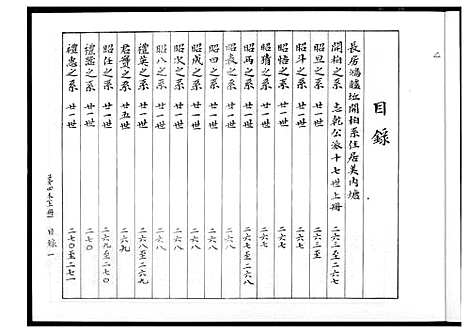 目錄
長居鴻臚坵開柏系住居美內塘
開柏之系 志乾公派十七世上冊 二六三至二六七
昭旦之系 廿一世 二六三至
昭斗之系 廿一世 二六七
昭悟之系 廿一世 二六七
昭請之系 廿一世 二六七
昭丙之系 廿一世 二六七至二六八
昭長之系 廿一世 二六八
昭四之系 廿一世 二六八
昭成之系 廿一世 二六八
昭次之系 廿一世 二六八
昭八之系 廿一世 二六八
禮英之系 廿一世 二六八至二六九
君贊之系 廿五世 二六九
昭任之系 廿一世 二六九至二七〇
禮謠之系 廿一世 二七〇
禮惠之系 廿一世 二七〇至二七一
目錄一